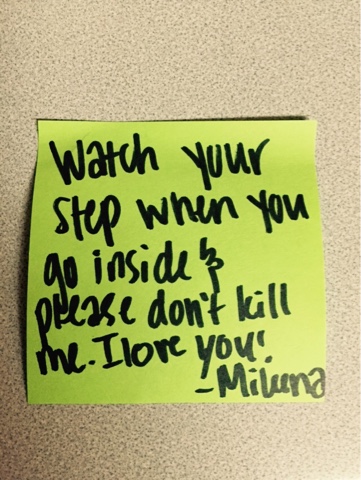 Watch your
step when you
go inside &
please don't kill
me. I love you!
-Miluna